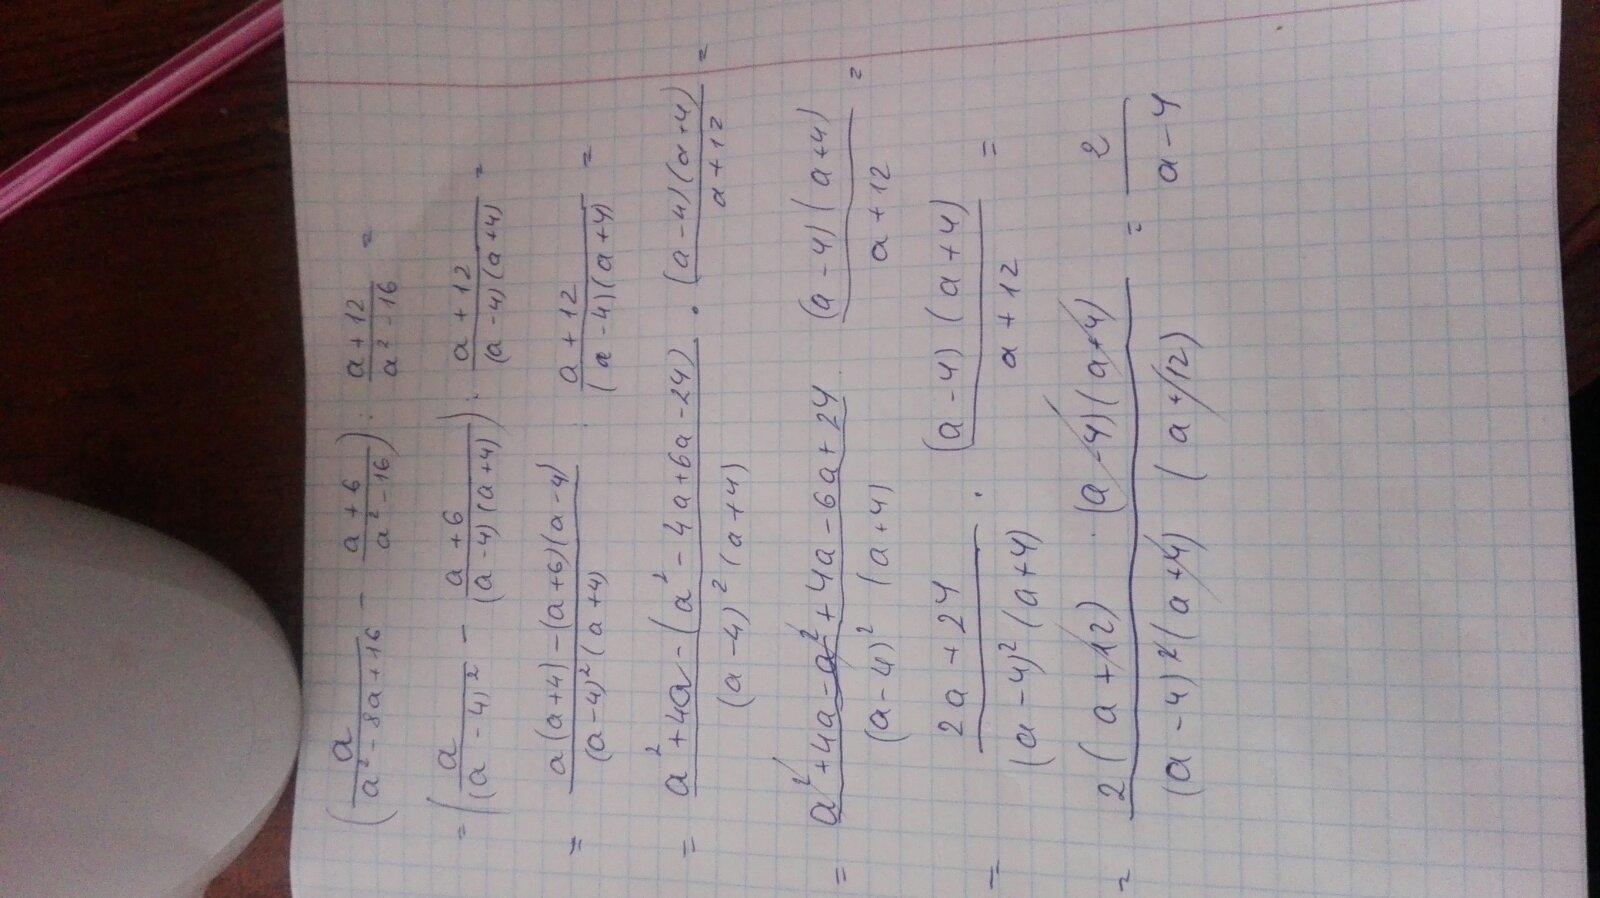 (a/(a² - 8a + 16) - (a + 6)/(a² - 16)) : (a + 12)/(a² - 16) =
= (a/(a - 4)² - (a + 6)/((a - 4)(a + 4))) : (a + 12)/((a - 4)(a + 4)) =
= (a(a + 4) - (a + 6)(a - 4))/((a - 4)²(a + 4)) : (a + 12)/((a - 4)(a + 4)) =
= (a² + 4a - (a² - 4a + 6a - 24))/((a - 4)²(a + 4)) · ((a - 4)(a + 4))/(a + 12) =
= (a² + 4a - a² + 4a - 6a + 24)/((a - 4)²(a + 4)) ((a - 4)(a + 4))/(a + 12) =
= (2a + 24)/((a - 4)²(a + 4)) · ((a - 4)(a + 4))/(a + 12) =
= (2(a + 12) · (a - 4)(a + 4))/((a - 4)²(a + 4) (a + 12)) = 2/(a - 4)